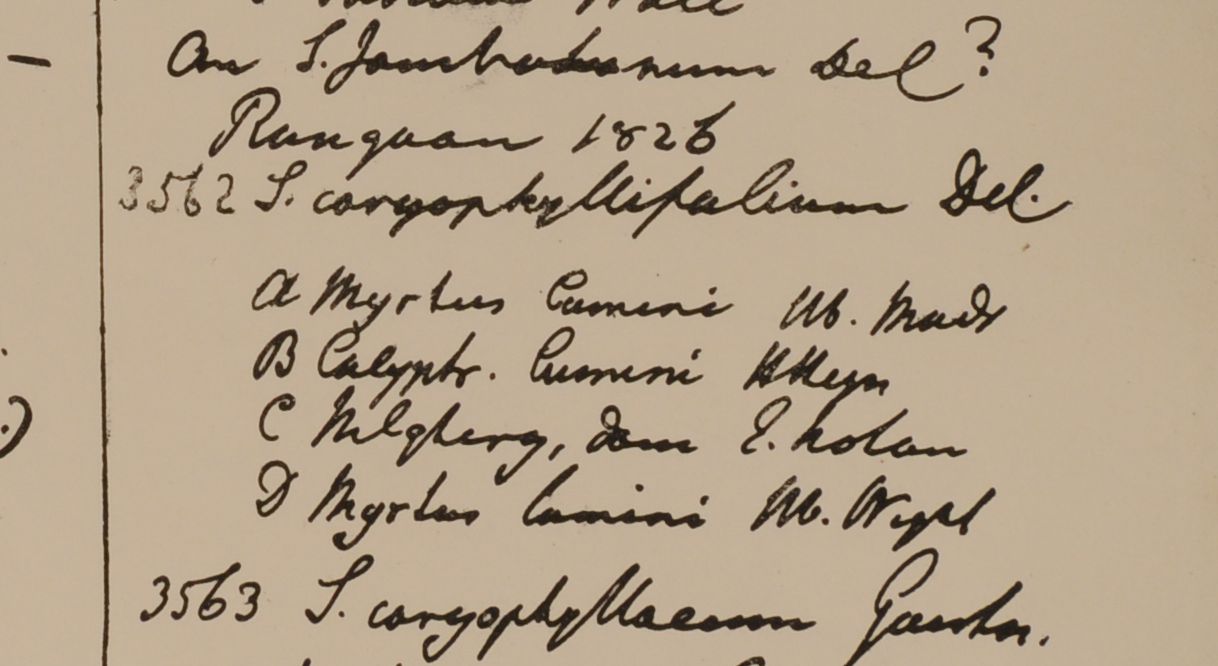 Wall
An S. Jambolanum Del?
Rangoon 1826
3562 S. caryophyllifolium Del.
A Myrtus Cumini Hb. Madr
B Calyptr. Cumini HHeyn
C Nilghery, dom E. Nolan
D Myrtus Cumini Hb. Wight
3563 S. caryophyllaeum Gaertn.